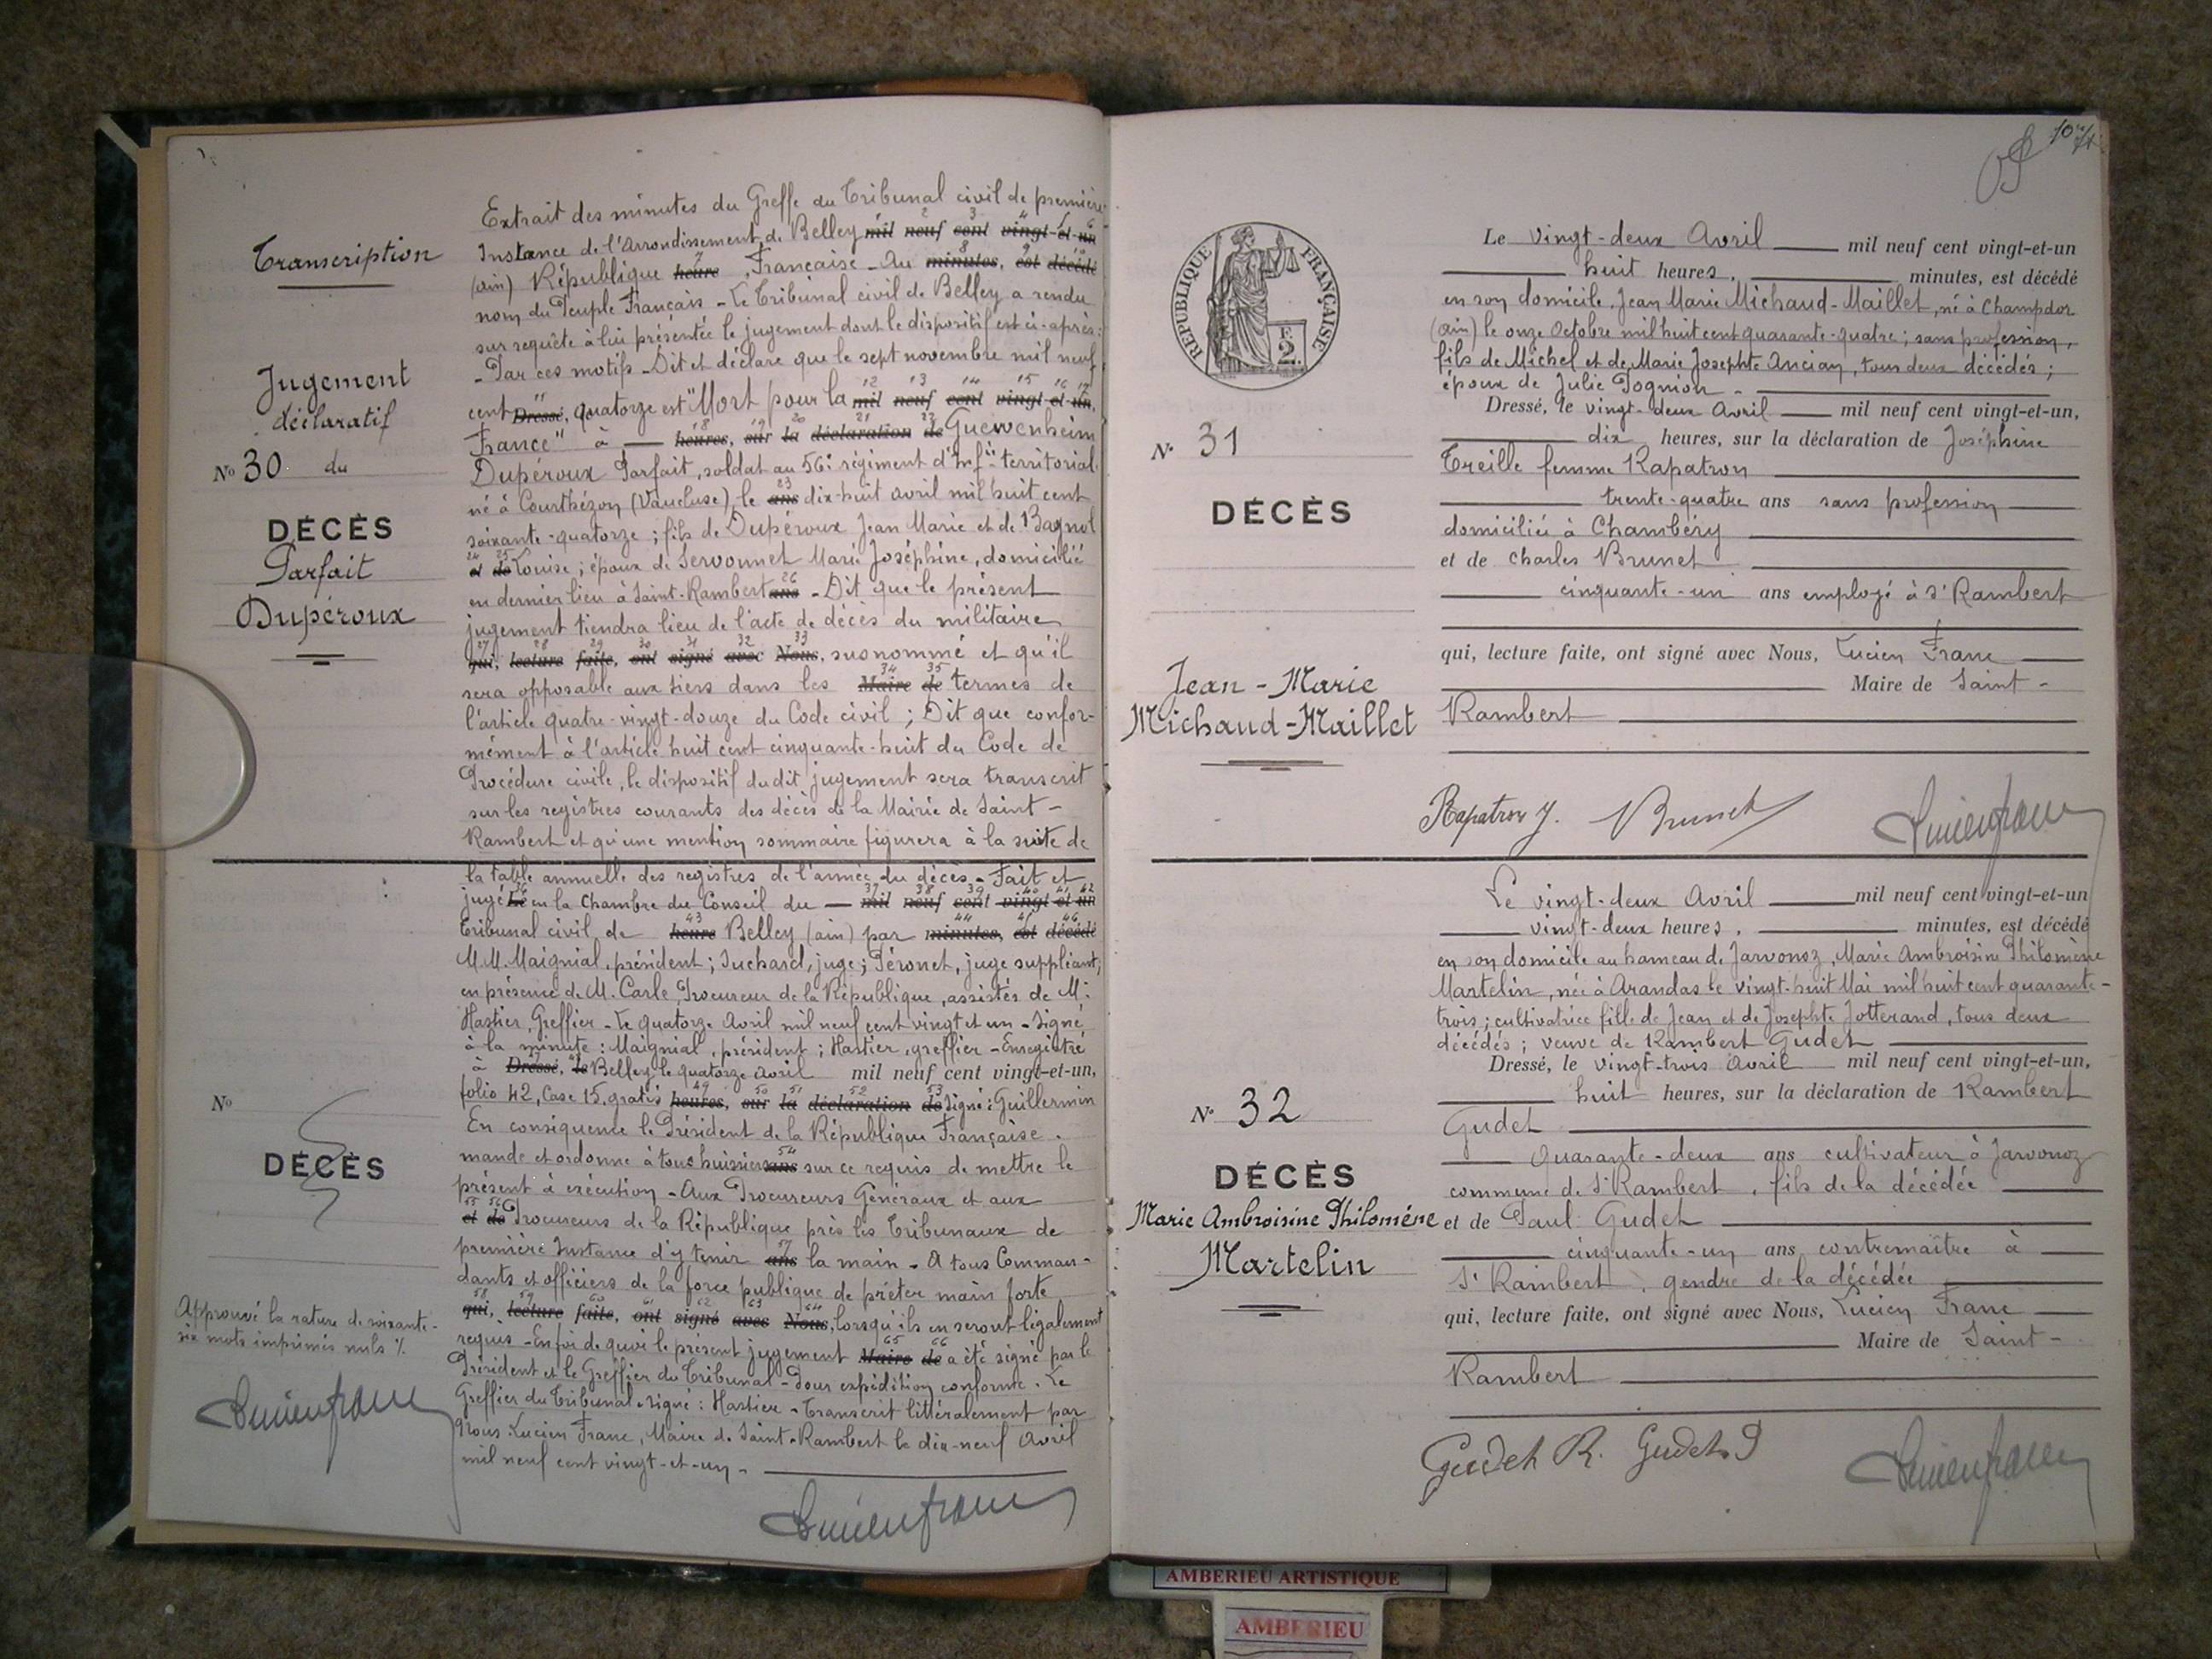 Transcription
Jugement
déclaratif
No 30 du
DÉCÈS
Parfait
Dupéroux
Extrait des minutes du Greffe du Tribunal civil de première
Instance de l'Arrondissement de Belley mil neuf cent vingt-et-un
(Ain) République heure Française - Au minutes, est décédé
nom du Peuple Français - Le Tribunal civil de Belley a rendu
sur requête à lui présentée le jugement dont le dispositif est ci-après:
- Par ces motifs - Dit et déclare que le sept novembre mil neuf
cent Dressé, quatorze est "Mort pour la mil neuf cent vingt-et-un,
France" à heures, sur la déclaration de Guewenheim
Dupéroux Parfait, soldat au 56e régiment d'Infie territorial
né à Courthézon (Vaucluse) le ans dix-huit avril mil huit cent
soixante-quatorze; fils de Dupéroux Jean Marie et de Bagnol
et de Louise; époux de Servonnet Marie Joséphine, domicilié
en dernier lieu à Saint-Rambert ans - Dit que le présent
jugement tiendra lieu de l'acte de décès du militaire
qui, lecture faite, ont signé avec Nous, susnommé et qu'il
sera opposable aux tiers dans les Maire de termes de
l'article quatre-vingt-douze du Code civil; Dit que confor-
mément à l'article huit cent cinquante-huit du Code de
Procédure civile, le dispositif dudit jugement sera transcrit
sur les registres courants des décès de la Mairie de Saint-
Rambert et qu'une mention sommaire figurera à la suite de
la table annuelle des registres de l'année du décès - Fait et
jugé Le en la Chambre du Conseil du mil neuf cent vingt-et-un
Tribunal civil de heure Belley (Ain) par minutes, est décédé
M.M. Maignial, président; Suchard, juge; Péronet, juge suppléant,
en présence de M. Carle, Procureur de la République, assistés de Me
Hastier, Greffier - Le quatorze Avril mil neuf cent vingt et un - Signé
à la minute: Maignial, président; Hastier, greffier - Enregistré
à Dressé, le Belley le quatorze avril mil neuf cent vingt-et-un,
folio 42, Case 15, gratis heures, sur la déclaration de Signé: Guillermin
En conséquence le Président de la République Française
mande et ordonne à tous huissiers ans sur ce requis de mettre le
présent à exécution - Aux Procureurs Généraux et aux
et de Procureurs de la République près les Tribunaux de
première Instance d'y tenir ans la main - A tous Comman-
dants et officiers de la force publique de prêter main forte
qui, lecture faite, ont signé avec Nous, lorsqu'ils en seront légalement
requis - En foi de quoi le présent jugement Maire de a été signé par le
Président et le Greffier du Tribunal - Pour expédition conforme. Le
Greffier du Tribunal signé: Hastier - Transcrit littéralement par
Nous Lucien Franc, Maire de Saint-Rambert le dix-neuf Avril
mil neuf cent vingt-et-un -
No
DÉCÈS
Approuvé la rature de soixante-
six mots imprimés nuls
Lucien Franc
Lucien Franc
RÉPUBLIQUE FRANÇAISE
F.
2.
No 31
DÉCÈS
Jean-Marie
Michaud-Maillet
Le vingt-deux Avril mil neuf cent vingt-et-un
huit heures, minutes, est décédé
en son domicile, Jean Marie Michaud-Maillet, né à Champdor
(Ain) le onze Octobre mil huit cent quarante-quatre; sans profession,
fils de Michel et de Marie Josephte Ancian, tous deux décédés;
époux de Julie Pognion -
Dressé, le vingt-deux Avril mil neuf cent vingt-et-un,
dix heures, sur la déclaration de Joséphine
Treille femme Rapatron
trente-quatre ans sans profession
domiciliée à Chambéry
et de Charles Brunet
cinquante-un ans employé à St Rambert
qui, lecture faite, ont signé avec Nous, Lucien Franc
Maire de Saint-
Rambert
Rapatron J. Brunet Lucien Franc
No 32
DÉCÈS
Marie Ambroisine Philomène
Martelin
Le vingt-deux Avril mil neuf cent vingt-et-un
vingt-deux heures, minutes, est décédé
en son domicile au hameau de Jarvonoz, Marie Ambroisine Philomène
Martelin, née à Arandas le vingt-huit Mai mil huit cent quarante-
trois; cultivatrice fille de Jean et de Josephte Jotterand, tous deux
décédés; veuve de Rambert Gudet
Dressé, le vingt-trois Avril mil neuf cent vingt-et-un,
huit heures, sur la déclaration de Rambert
Gudet
Quarante-deux ans cultivateur à Jarvonoz
commune de St Rambert, fils de la décédée
et de Paul Gudet
cinquante-un ans contremaître à
St Rambert, gendre de la décédée
qui, lecture faite, ont signé avec Nous, Lucien Franc
Maire de Saint-
Rambert
Gudet R. Gudet P Lucien Franc
AMBERIEU ARTISTIQUE
AMBERIEU